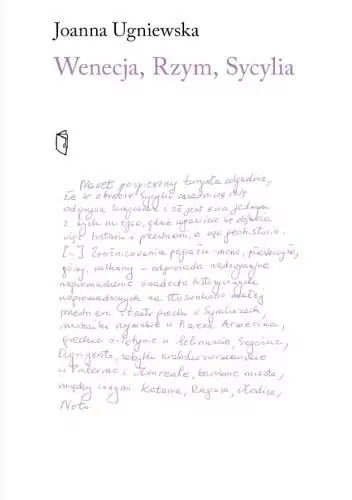 Joanna Ugniewska
Wenecja, Rzym, Sycylia
Nawet pospieszny turysta odgadnie,
że w obrazie Sycylii zasadniczą rolę
odgrywa krajobraz i że jest ona jednym
z tych miejsc, gdzie
więc historii i przestrzeni, a nie geohistorii.
[–] Zróżnicowanie pejzażu – morze, płaskowyże,
góry, wulkany – odpowiada nadzwyczajne
nagromadzenie świadectw historycznych
nagromadzonych na stosunkowo małej
przestrzeni: teatr grecki w Syrakuzach,
mozaiki rzymskie w Piazza Armerina,
greckie świątynie w Selinuncie, Segeście,
Agrigento, zabytki arabsko-normańskie
w Palermo i Monreale, barokowe miasta,
między innymi Katania, Ragusa, Modica,
Noto.